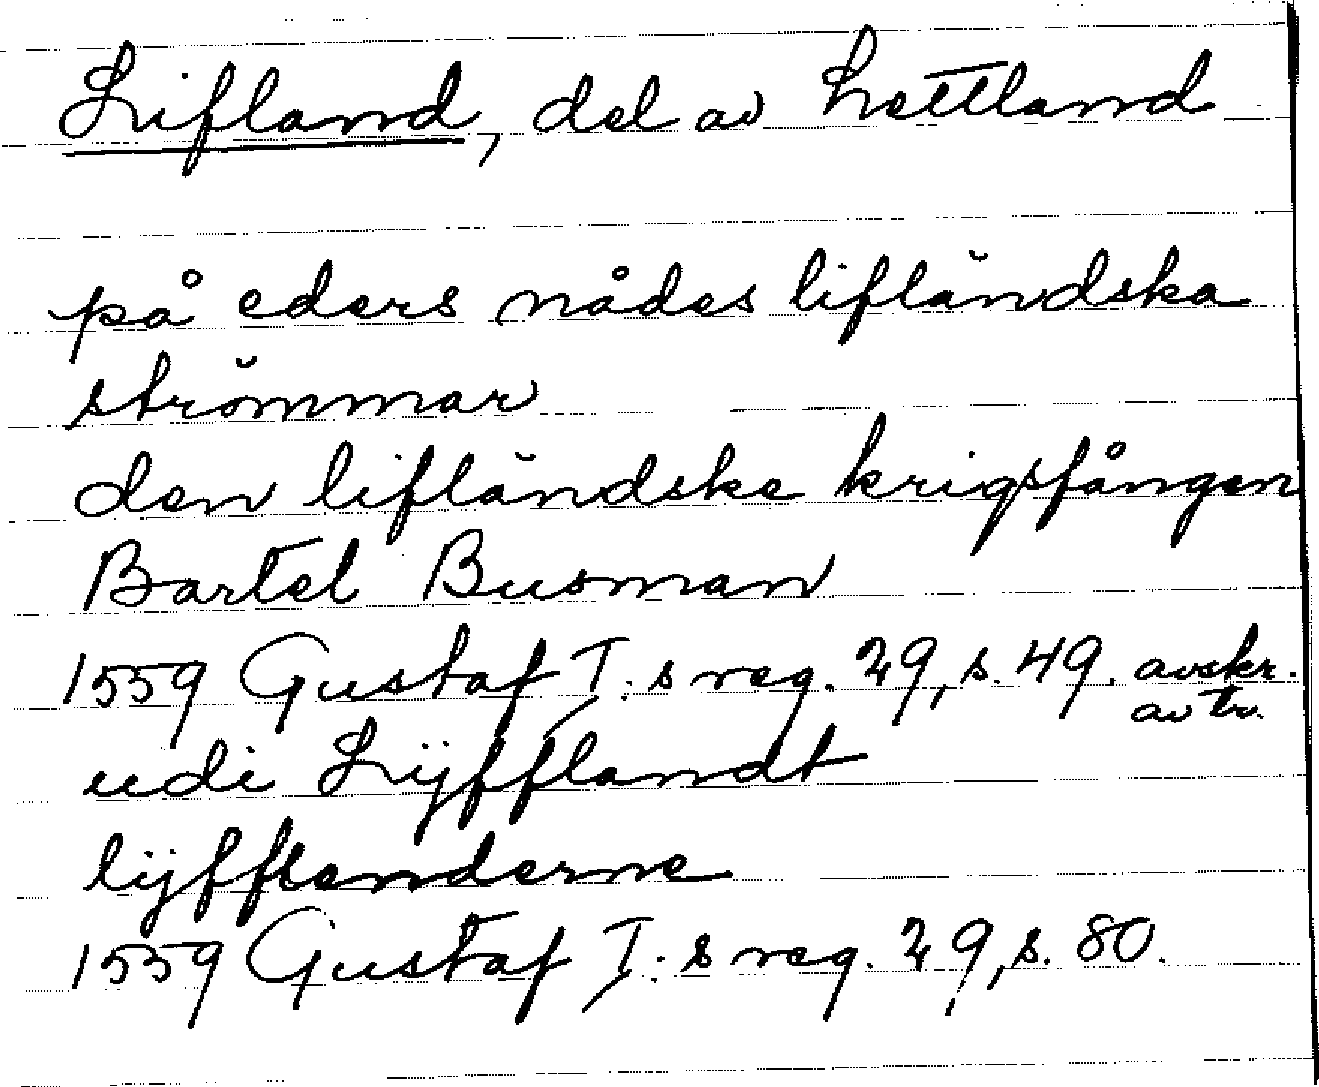 Lifland, del av Lettland
på eders nådes lifländska
strömmar
den lifländske krigsfången
Bartel Busman
1559 Gustaf I:s reg. 29, s. 49. avskr.
av tr.
udi Lÿfflandt
lÿfflenderne
1559 Gustaf I:s reg. 29, s. 80.